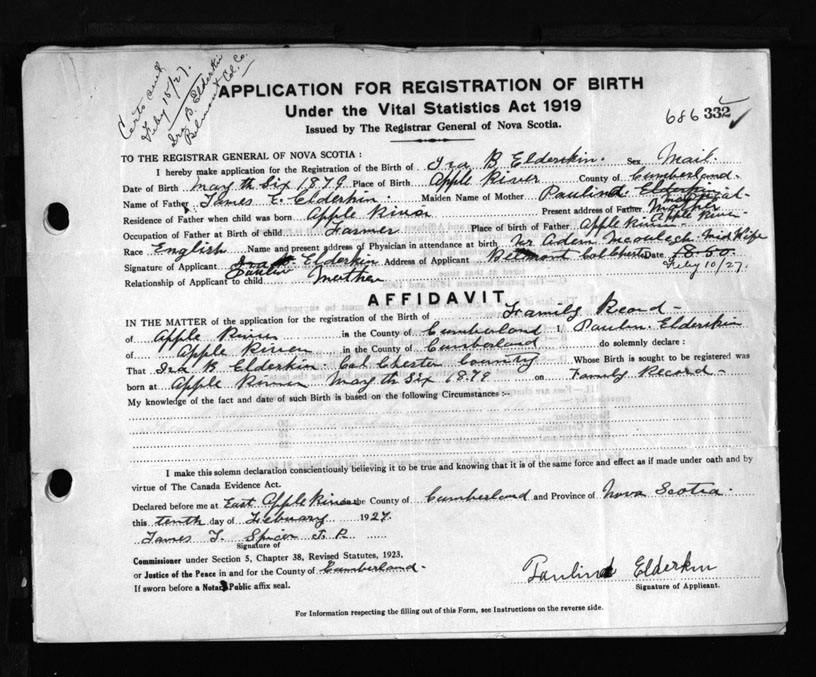 Feby 15/27.
Ira B. Elderkin
Belmont Col. Co.
APPLICATION FOR REGISTRATION OF BIRTH
Under the Vital Statistics Act 1919
Issued by The Registrar General of Nova Scotia.
686 332
TO THE REGISTRAR GENERAL OF NOVA SCOTIA :
I hereby make application for the Registration of the Birth of Ira B Elderkin. Sex Mail.
Date of Birth May th Six 1879 Place of Birth Apple River County of Cumberland.
Name of Father James E. Elderkin. Maiden Name of Mother Pauline Elderkin
Residence of Father when child was born Apple River Present address of Father
Occupation of Father at Birth of child Farmer Place of birth of Father Apple River Apple River
Race English Name and present address of Physician in attendance at birth Mid Wife
Signature of Applicant Ira Elderkin Address of Applicant Belmont Colchester Date
Pauline Feby 10/27.
Relationship of Applicant to child Mother
AFFIDAVIT
IN THE MATTER of the application for the registration of the Birth of Family Record -
of Apple River in the County of Cumberland I, Paulin. Elderkin
of Apple River in the County of Cumberland do solemnly declare :
That Ira B. Elderkin. Col Chester County Whose Birth is sought to be registered was
born at Apple River May th Six 1879 on Family Record -
My knowledge of the fact and date of such Birth is based on the following Circumstances :-
I make this solemn declaration conscientiously believing it to be true and knowing that it is of the same force and effect as if made under oath and by
virtue of The Canada Evidence Act.
Declared before me at East Apple River the County of Cumberland and Province of Nova Scotia.
this tenth day of Febuary 1927.
James T. Spicer J. P.
Signature of
Commissioner under Section 5, Chapter 38, Revised Statutes, 1923.
or Justice of the Peace in and for the County of Cumberland.
If sworn before a Notary Public affix seal.
Pauline Elderkin
Signature of Applicant.
For Information respecting the filling out of this Form, see Instructions on the reverse side.